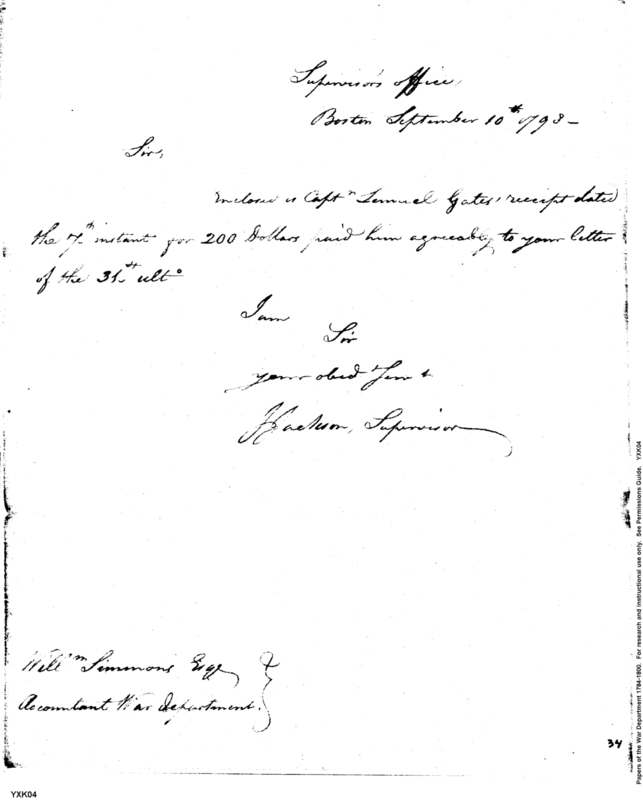 Supervisor's Office,
Boston September 10th 1798 -
Sir,
Enclosed is Captn Lemuel Gates' receipt dated
the 7th instant for 200 Dollars paid him agreeably to your letter
of the 31st ulto
I am
Sir
your obedt Servt
J Jackson, Supervisor
Willm Simmons Esqr
Accountant War department.
34
YXK04
Papers of the War Department 1784-1800. For research and instructional use only. See Permissions Guide. YXK04